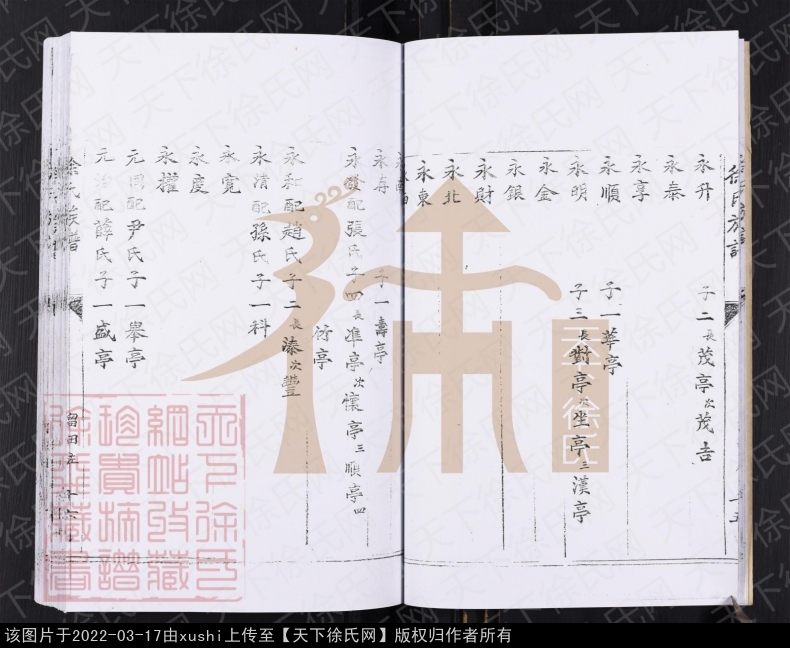 徐氏族譜
永升 子二長茂亭次茂吉
永泰
永享
永順 子一華亭
永明 子三長對亭次坐亭三漢亭
永金
永銀
永財
永北
永東
永寿 子一壽亭
永發配張氏子四長準亭次懷亭三順亭四
衍亭
永和配趙氏子二長溱次豐
永清配孫氏子一科
永寬
永慶
永權
配尹氏子一舉亭
配薛氏子一盛亭
徐氏族譜
留田庄
天下徐氏
網站收藏
珍貴摘譜
徐雁藏書
天下徐氏网
该图片于2022-03-17由xushi上传至【天下徐氏网】版权归作者所有